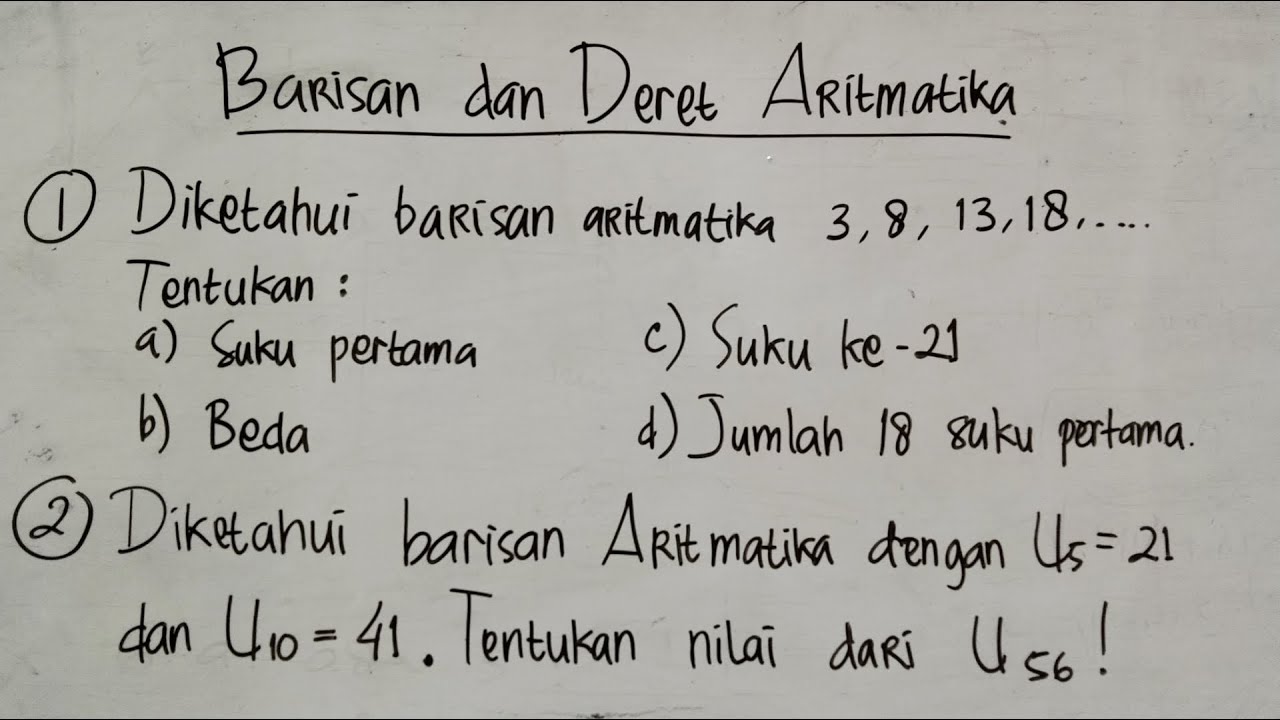 Barisan dan Deret Aritmatika
① Diketahui barisan aritmatika 3, 8, 13, 18, ....
Tentukan :
a) Suku pertama
b) Beda
c) Suku ke-21
d) Jumlah 18 suku pertama.
② Diketahui barisan Aritmatika dengan U₅ = 21
dan U₁₀ = 41. Tentukan nilai dari U₅₆ !